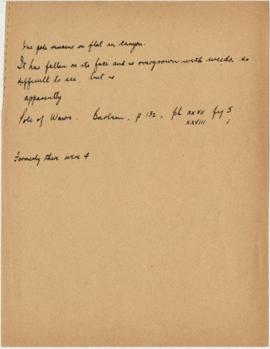 One pole remains on flat in canyon.
It has fallen on its face and is overgrown with weeds, so
difficult to see, but is
apparently
Pole of Waws. Barbeau, p 132, pl XXVII fig 5
XXVIII 1
Formerly there were 4